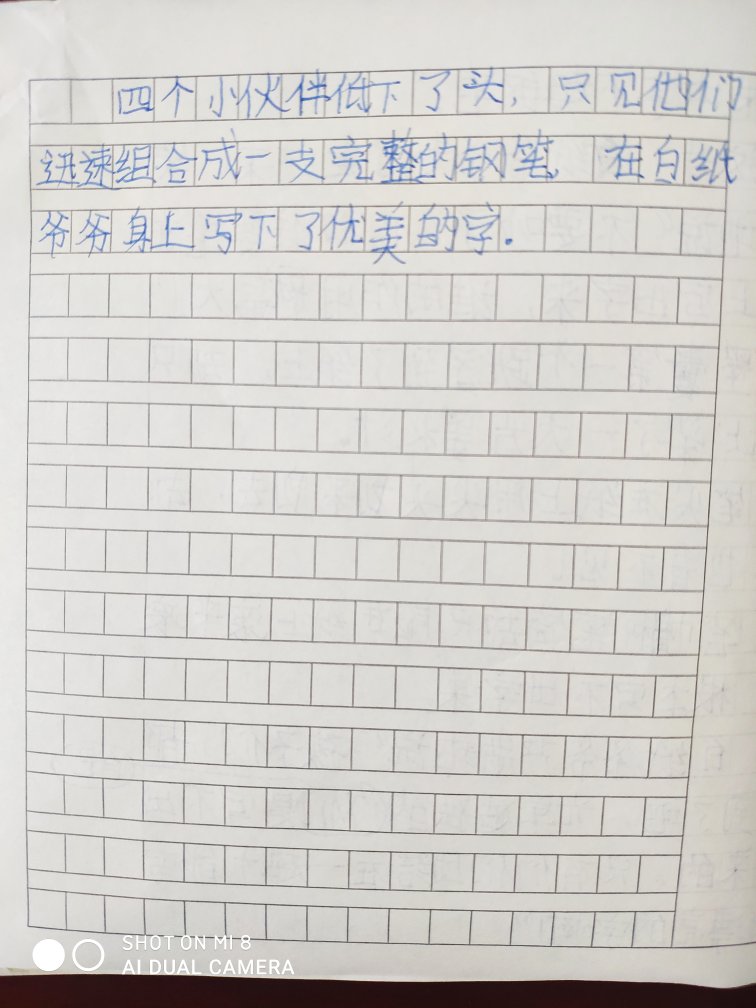 四个小伙伴低下了头，只见他们
迅速组合成一支完整的钢笔 在白纸
爷爷身上写下了优美的字.
SHOT ON MI 8
AI DUAL CAMERA